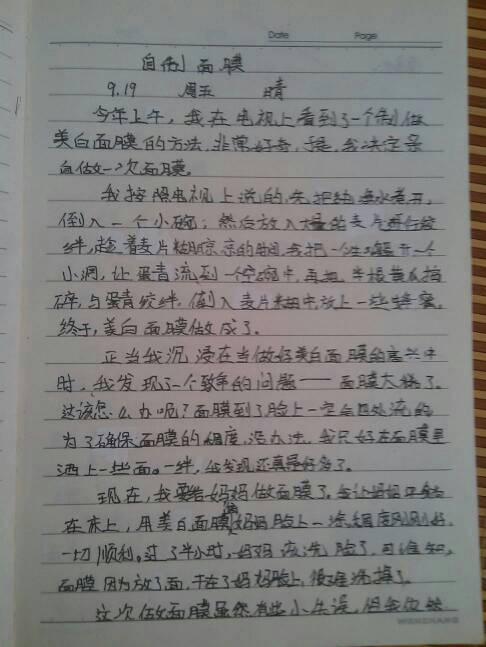 Date Page
自制面膜
9.19 周五 晴
今年上午,我在电视上看到了一个制做
美白面膜的方法,非常好奇,于是,我决定亲
自做一次面膜。
我按照电视上说的,先把纯净水煮开,
倒入一个小碗;然后放入大量的麦片进行绞
绊,趁着麦片糊晾凉的时间,我把一个生鸡蛋开一个
小洞,让蛋青流到一个空碗中,再把半根黄瓜捣
碎,与蛋青绞绊,倒入麦片糊中,放上一些蜂蜜。
终于,美白面膜做成了。
正当我沉浸在当做好美白面膜的高兴中
时,我发现了一个致命的问题——面膜太稀了。
这该怎么办呢?面膜到了脸上一定会四处流的
为了确保面膜的稠度,没办法,我只好在面膜里
洒上一些面。一绊,我发现还真是好多了。
现在,我要给妈妈做面膜了。我让妈妈平躺
在床上,用美白面膜往妈妈脸上一涂,稠度刚刚好,
一切顺利。过了半小时,妈妈该洗脸了,可谁知,
面膜因为放了面,干在了妈妈脸上,很难洗掉了。
这次做面膜虽然有些小失误,但我仍然
WENZHANG